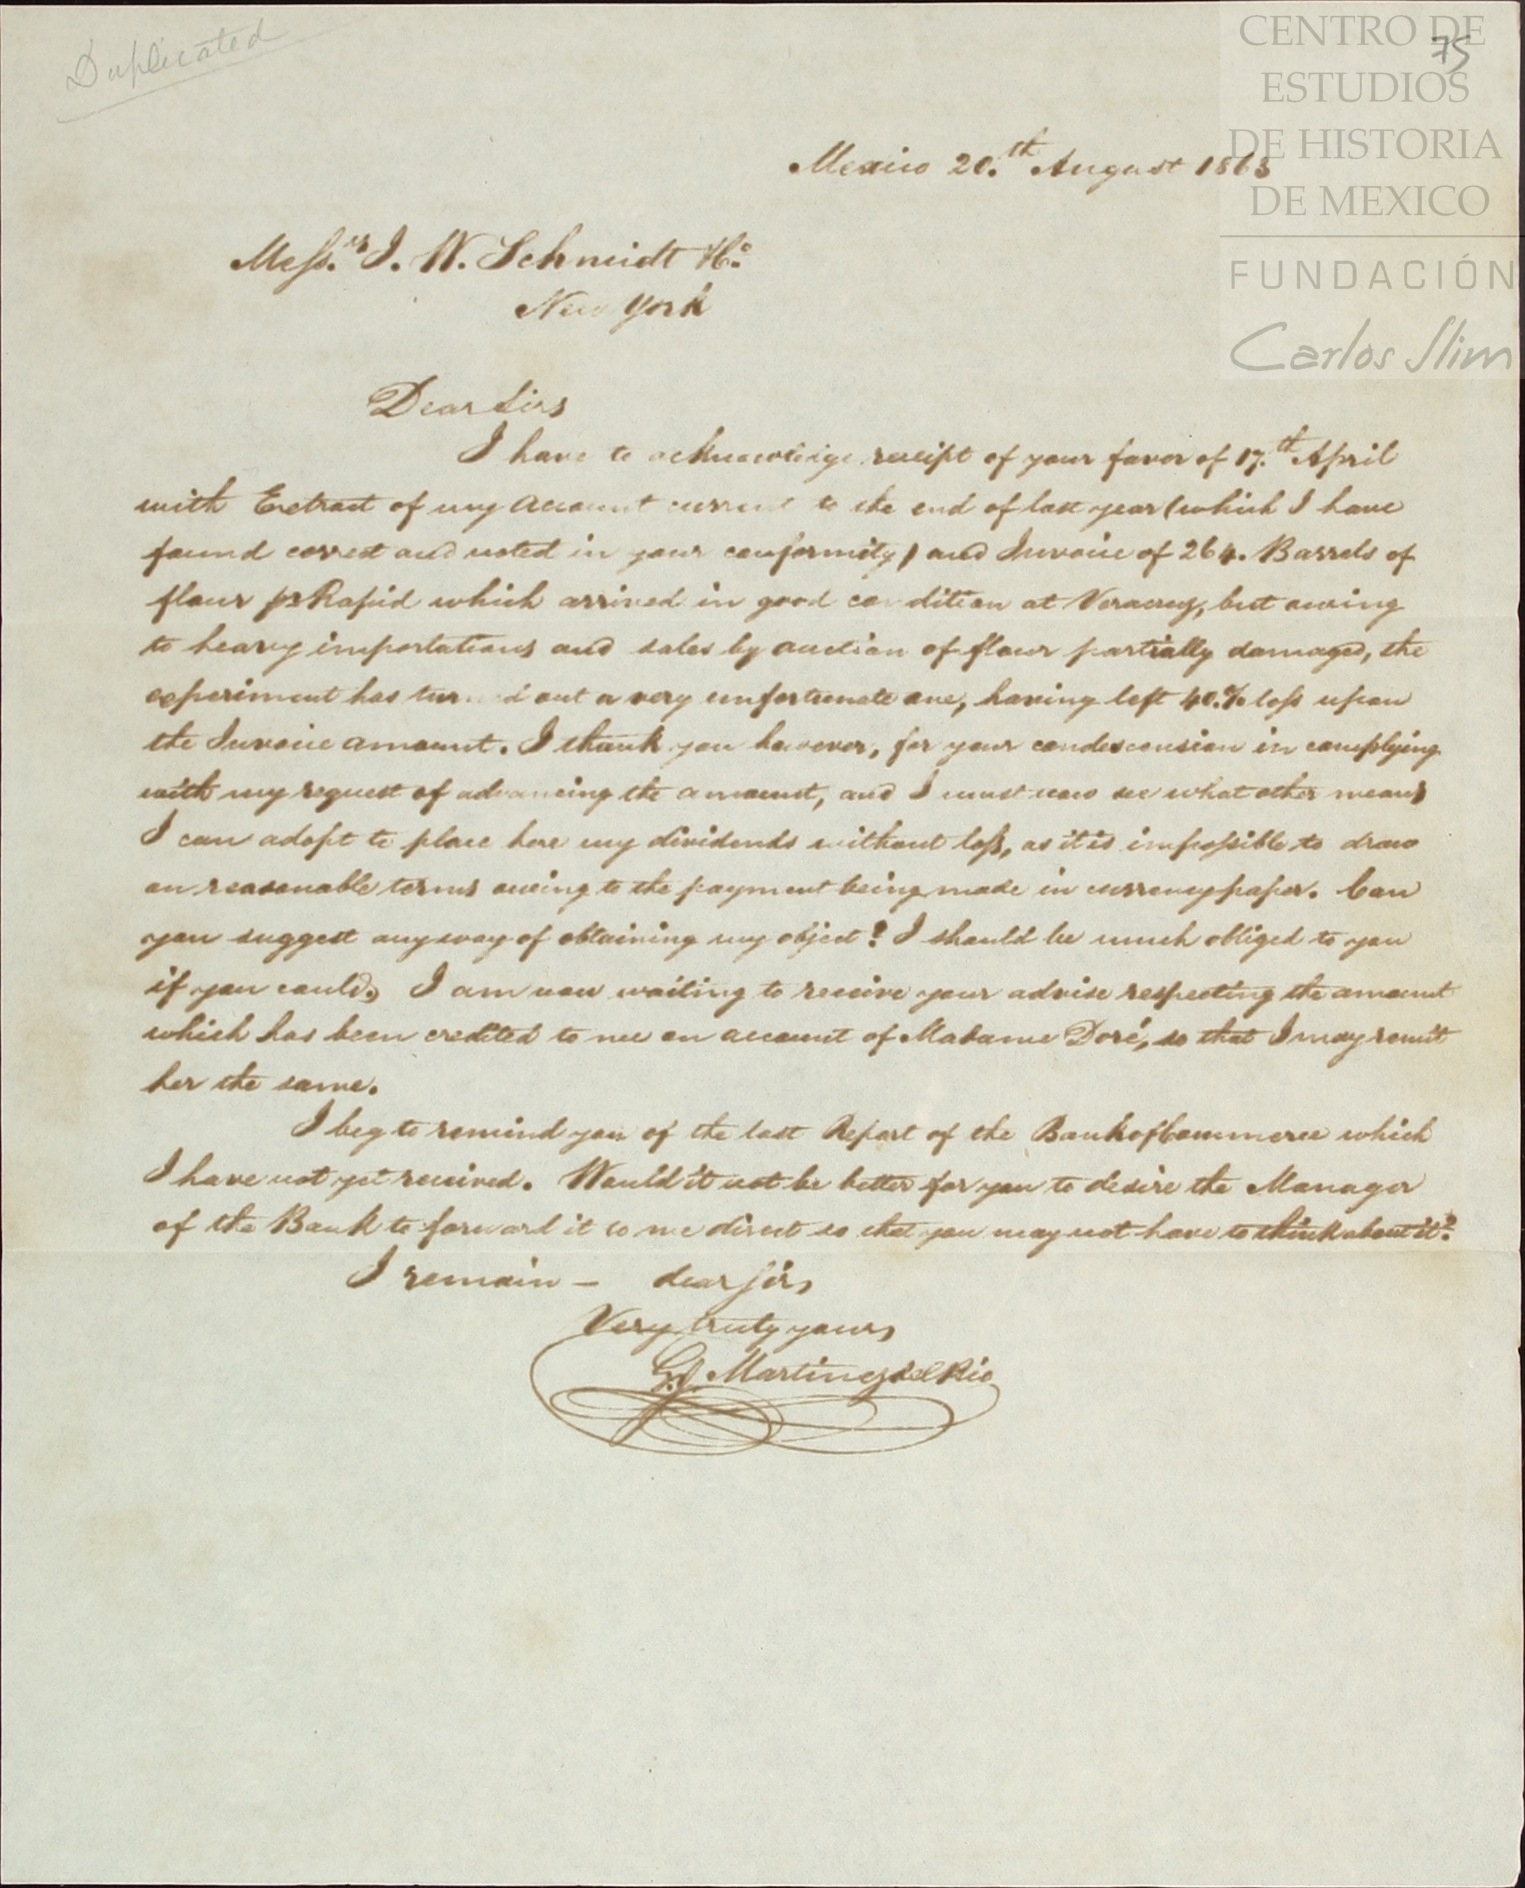 Duplicated
75
CENTRO DE
ESTUDIOS
DE HISTORIA
DE MEXICO
FUNDACIÓN
Carlos Slim
Mexico 20.th August 1863
Mess.rs J. W. Schmidt &Co.
New York
Dear Sirs
I have to acknowledge receipt of your favor of 17.th April
with Extract of my account current to the end of last year (which I have
found correct and noted in your conformity) and Invoice of 264. Barrels of
flour pr Rapid which arrived in good condition at Veracruz, but owing
to heavy importations and sales by auction of flour partially damaged, the
experiment has turned out a very unfortunate one, having left 40.% loss upon
the Invoice amount. I thank you however, for your condescension in complying
with my request of advancing the amount, and I must now see what other means
I can adopt to place here my dividends without loss, as it is impossible to draw
on reasonable terms owing to the payment being made in currency paper. Can
you suggest any way of obtaining my object? I should be much obliged to you
if you could. I am now waiting to receive your advise respecting the amount
which has been credited to me on account of Madame Doré, so that I may remit
her the same.
I beg to remind you of the last Report of the Bank of Commerce which
I have not yet received. Would it not be better for you to desire the Manager
of the Bank to forward it to me direct so that you may not have to think about it?
I remain – dear Sirs
Very truly yours
Martinez del Rio